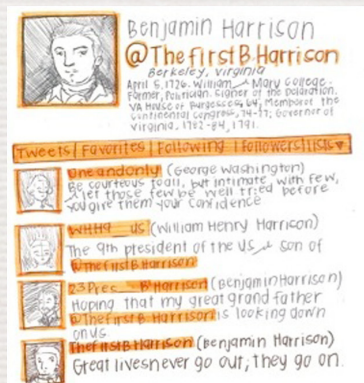 Benjamin Harrison
@ThefirstB.Harrison
Berkeley, Virginia
April 5, 1726. William & Mary College.
Farmer, Politician. Signer of the
VA House of Burgesses, 64, Member of the
Continental Congress, 74-77; Governor of
Virginia, 1782-84, 1791.
Tweets | Favorites | Following | Followers | lists
Oneandonly (George Washington)
Be courteous to all, but intimate with few,
& let those few be well tried before
you give them your confidence
WHH9__US (William Henry Harrison)
The 9th president of the US & son of
@ThefirstBHarrison
23Pres__BHarrison (Benjamin Harrison)
Hoping that my great grand father
@ThefirstB.Harrison is looking down
on us.
ThefirstBHarrison (Benjamin Harrison)
Great lives never go out; they go on.